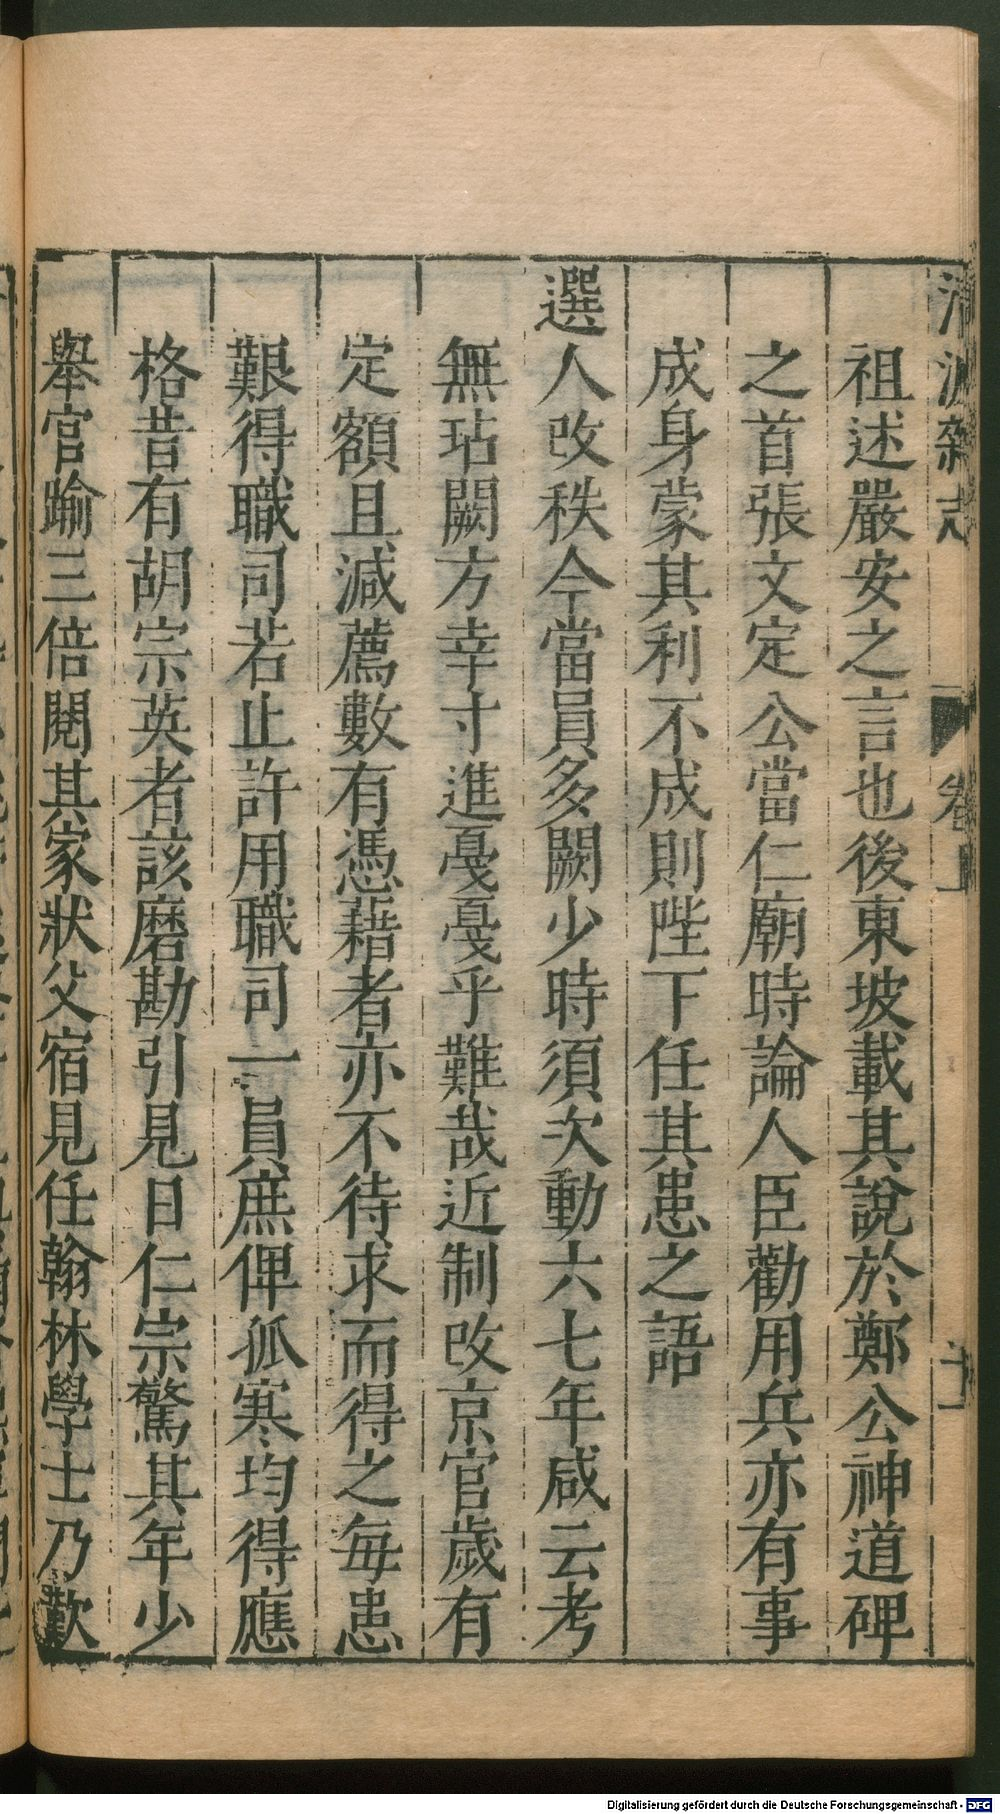 清波雜志 卷上 十一
祖述嚴安之言也後東坡載其說於鄭公神道碑
之首張文定公當仁廟時論人臣勸用兵亦有事
成身蒙其利不成則陛下任其患之語
選人改秩今當員多闕少時須次動六七年咸云考
無玷闕方幸寸進戞戞乎難哉近制改京官歲有
定額且減薦數有憑藉者亦不待求而得之每患
艱得職司若止許用職司一員庶俾孤寒均得應
格昔有胡宗英者該磨勘引見日仁宗驚其年少
舉官踰三倍閱其家狀父宿見任翰林學士乃歎
Digitalisierung gefördert durch die Deutsche Forschungsgemeinschaft - DFG